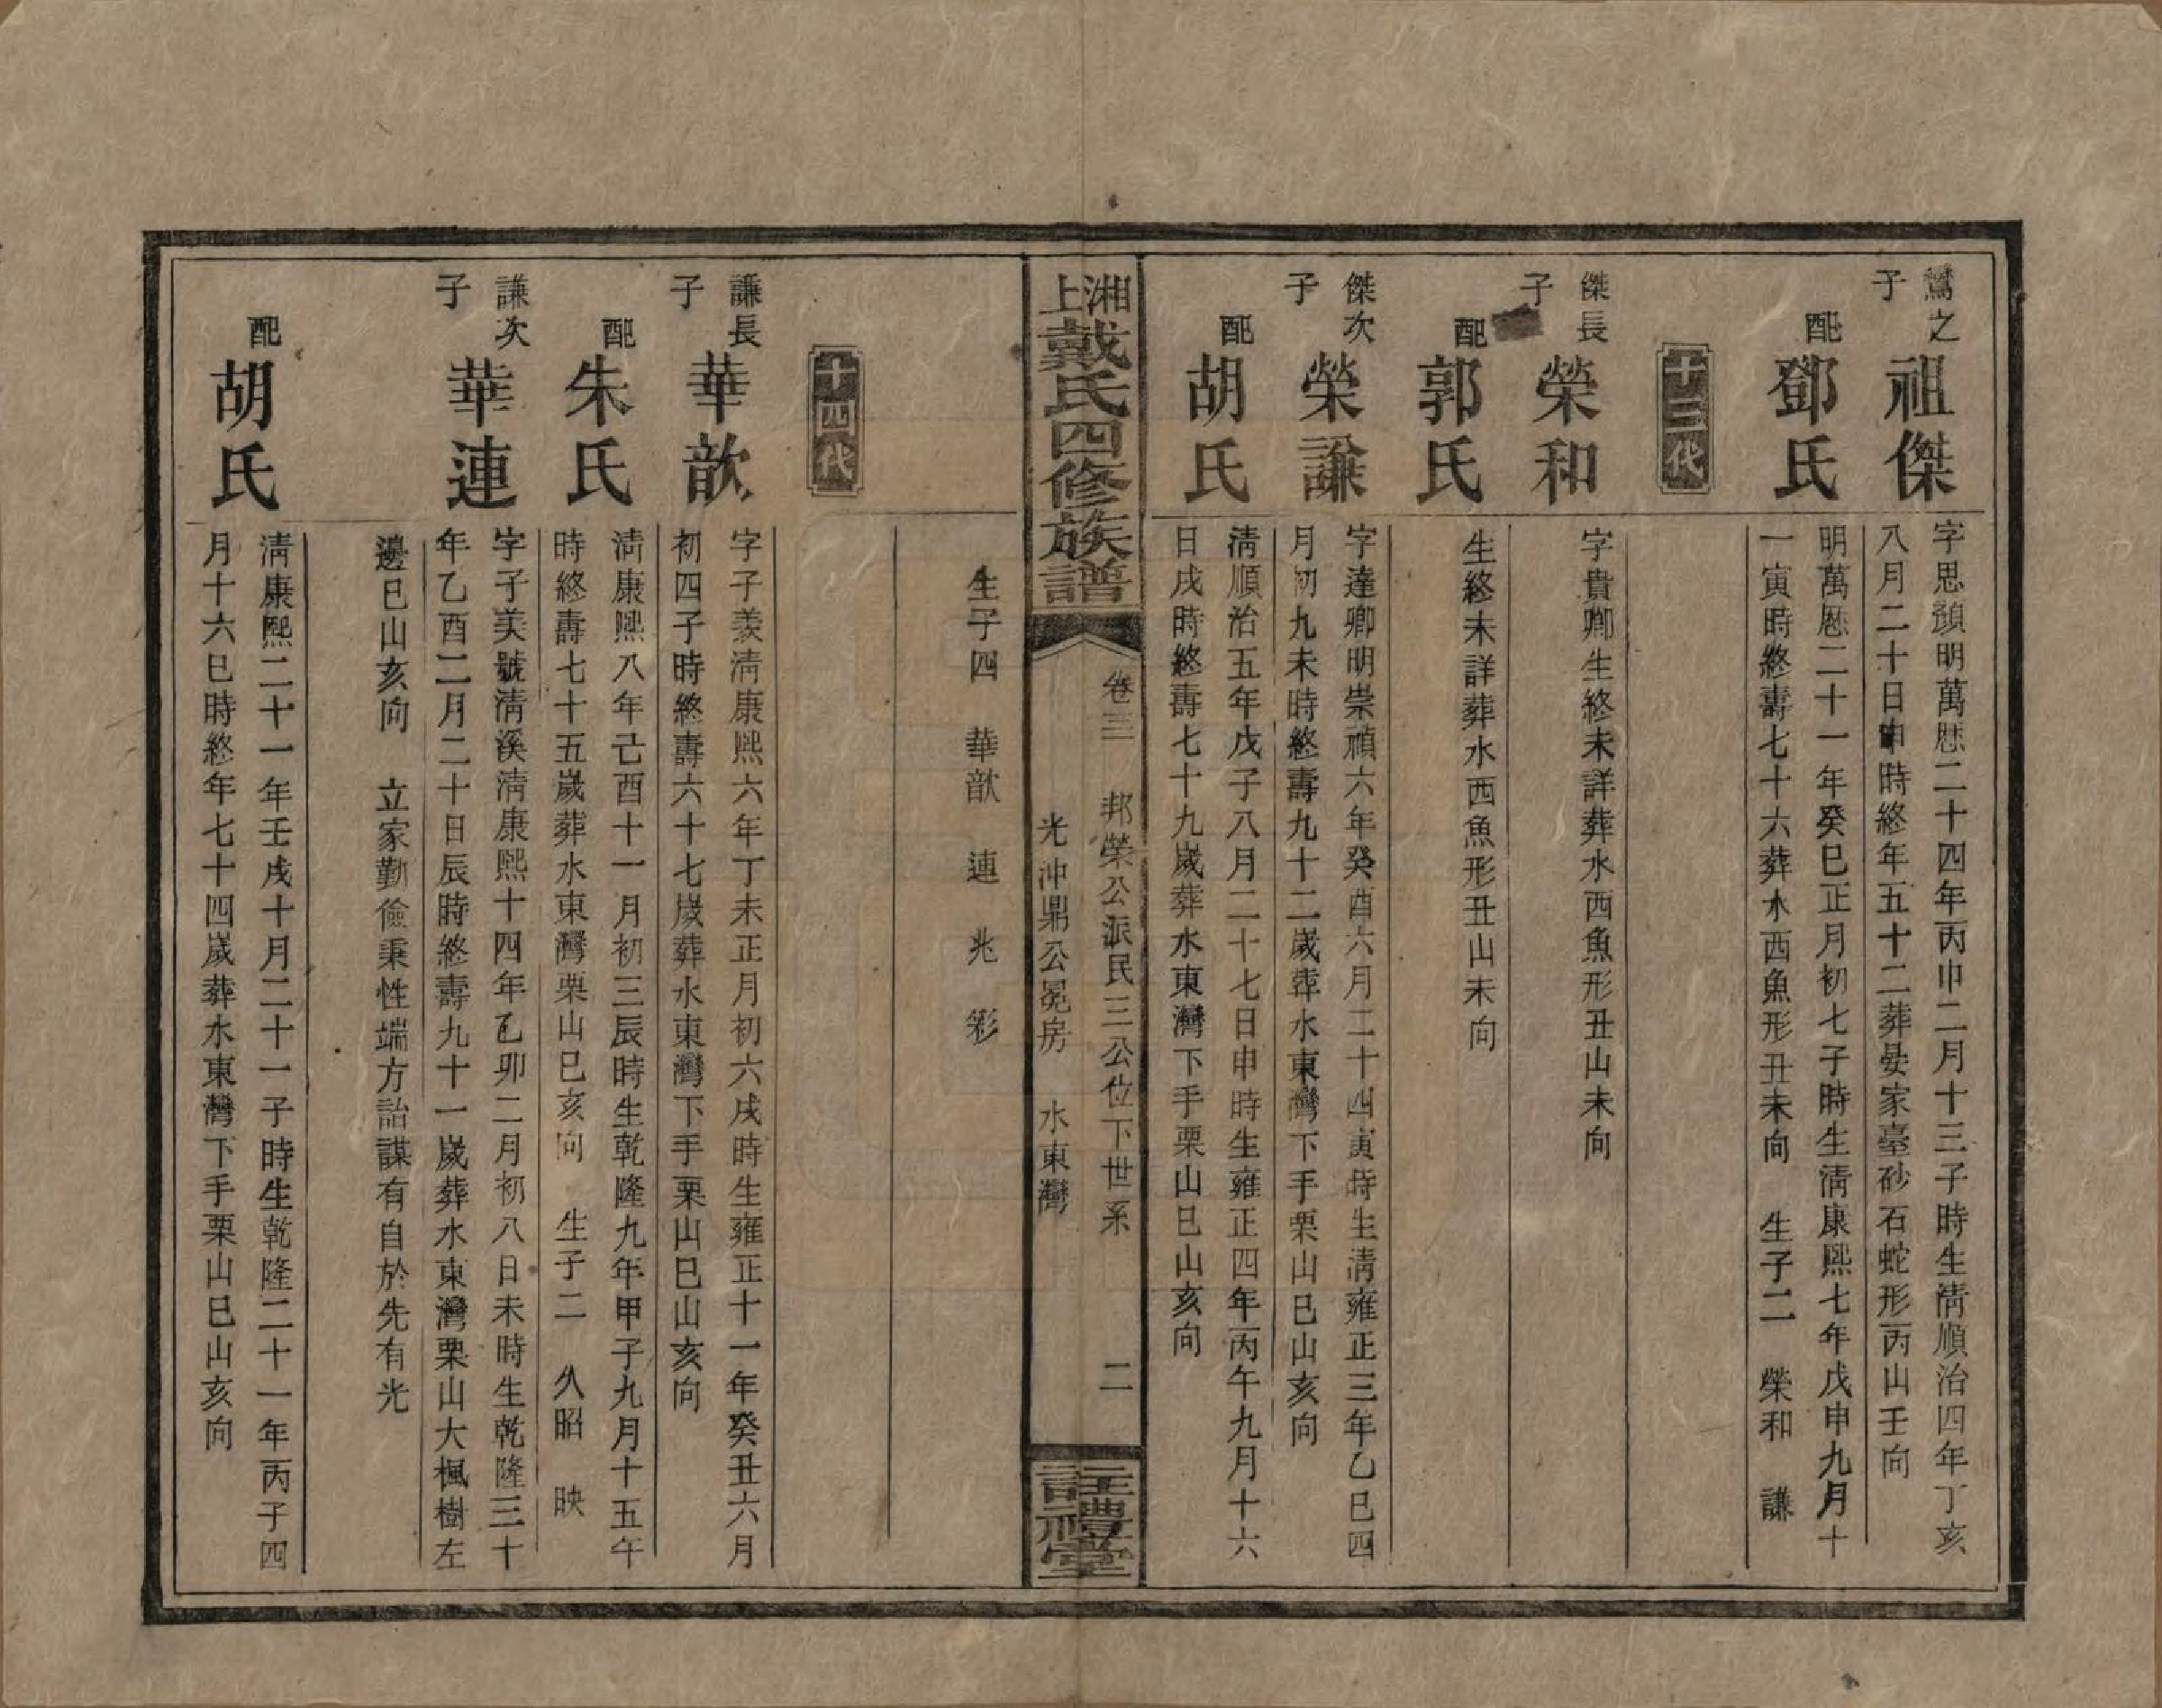 鶯之子
祖傑
字思頴明萬厯二十四年丙申二月十三子時生清順治四年丁亥
八月二十日申時終年五十二葬晏家臺砂石蛇形丙山壬向
配鄧氏
明萬厯二十一年癸巳正月初七子時生清康熙七年戊申九月十
一寅時終壽七十六葬水西魚形丑未向 生子二 榮和 謙
十三代
傑長子
榮和
字貴卿生終未詳葬水西魚形丑山未向
配郭氏
生終未詳葬水西魚形丑山未向
傑次子
榮謙
字達卿明崇禎六年癸酉六月二十四寅時生清雍正三年乙巳四
月初九未時終壽九十二嵗葬水東灣下手栗山巳山亥向
配胡氏
清順治五年戊子八月二十七日申時生雍正四年丙午九月十六
日戌時終壽七十九嵗葬水東灣下手栗山巳山亥向
湘上戴氏四修族譜
卷三 邦榮公派民三公位下世系
光沖鼎公冕房 水東灣
二
註禮堂
生子四 華歆 連 兆 彩
十四代
謙長子
華歆
字子羨清康熙六年丁未正月初六戌時生雍正十一年癸丑六月
初四子時終壽六十七嵗葬水東灣下手栗山巳山亥向
配朱氏
清康熙八年己酉十一月初三辰時生乾隆九年甲子九月十五午
時終壽七十五嵗葬水東灣栗山巳亥向 生子二 久昭 映
謙次子
華連
字子美號清溪清康熙十四年乙卯二月初八日未時生乾隆三十
年乙酉二月二十日辰時終壽九十一嵗葬水東灣栗山大楓樹左
邊巳山亥向 立家勤儉秉性端方詒謀有自於先有光
配胡氏
清康熙二十一年壬戌十月二十一子時生乾隆二十一年丙子四
月十六巳時終年七十四嵗葬水東灣下手栗山巳山亥向